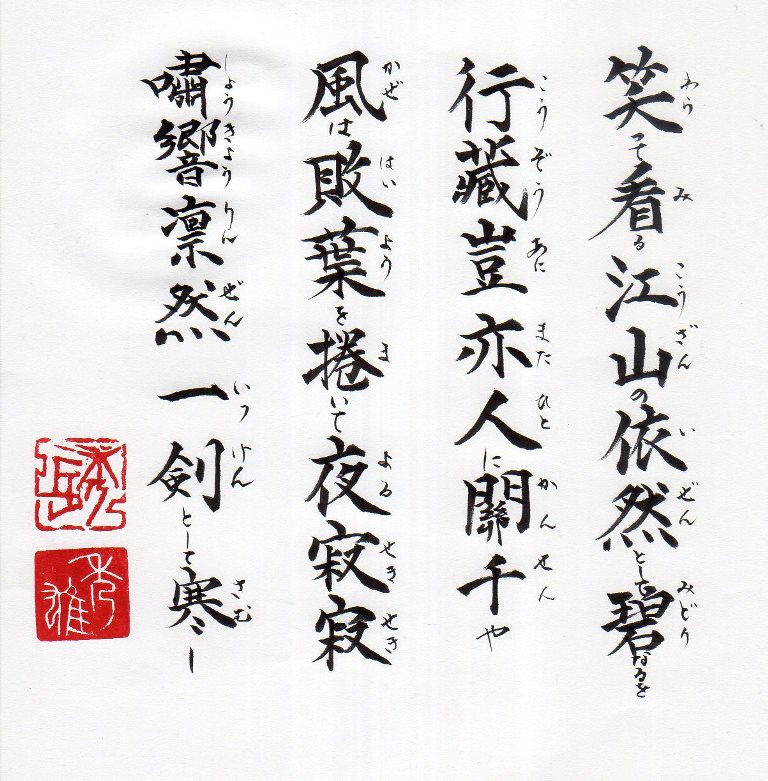 笑って看る江山の依然として碧なるを
わらみこうざんいぜんみどり
行藏豈亦人に關千や
こうぞうあにまたひとかんせん
風は敗葉を捲いて夜寂寂
かぜはいようまよるせきせき
嘯響凛然一剣として寒し
しょうきょうりんぜんいっけんさむ